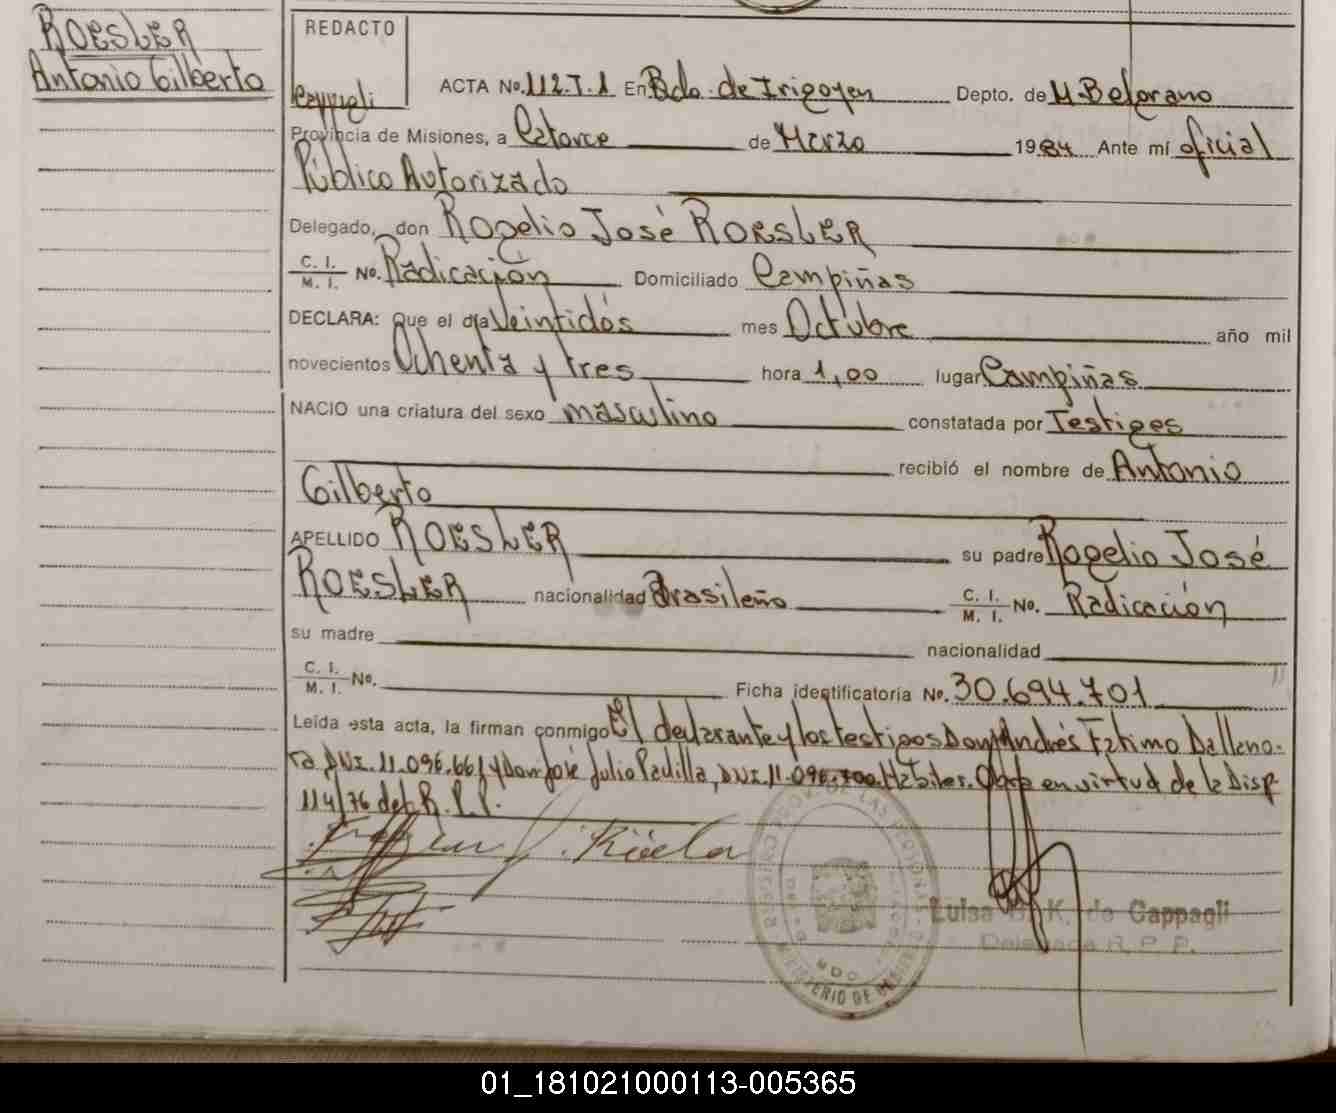 ROESLER
Antonio Gilberto
REDACTO
Cappagli
ACTA No. 112. T. 1 En Bdo. de Irigoyen Depto. de M. Belgrano
Provincia de Misiones, a Catorce de Marzo 1984 Ante mí oficial
Público Autorizado
Delegado, don Rogelio José ROESLER
C. I. / M. I. No. Radicación Domiciliado Campiñas
DECLARA: Que el día Veintidós mes Octubre año mil
novecientos Ochenta y tres hora 1,00 lugar Campiñas
NACIO una criatura del sexo masculino constatada por Testigos
recibió el nombre de Antonio
Gilberto
APELLIDO ROESLER su padre Rogelio José
ROESLER nacionalidad Brasileño C. I. / M. I. No. Radicación
su madre nacionalidad
C. I. / M. I. No. Ficha identificatoria No. 30.694.701
Leída esta acta, la firman conmigo El declarante y los testigos Don Andrés Fatimo
DNI. 11.096.661 y Don José Julio Padilla, DNI. 11.096.700. Hábiles. en virtud de la Disp
114/76 del R. P. P.
Luisa K. de Cappagli
Delegada R. P. P.
01_181021000113-005365